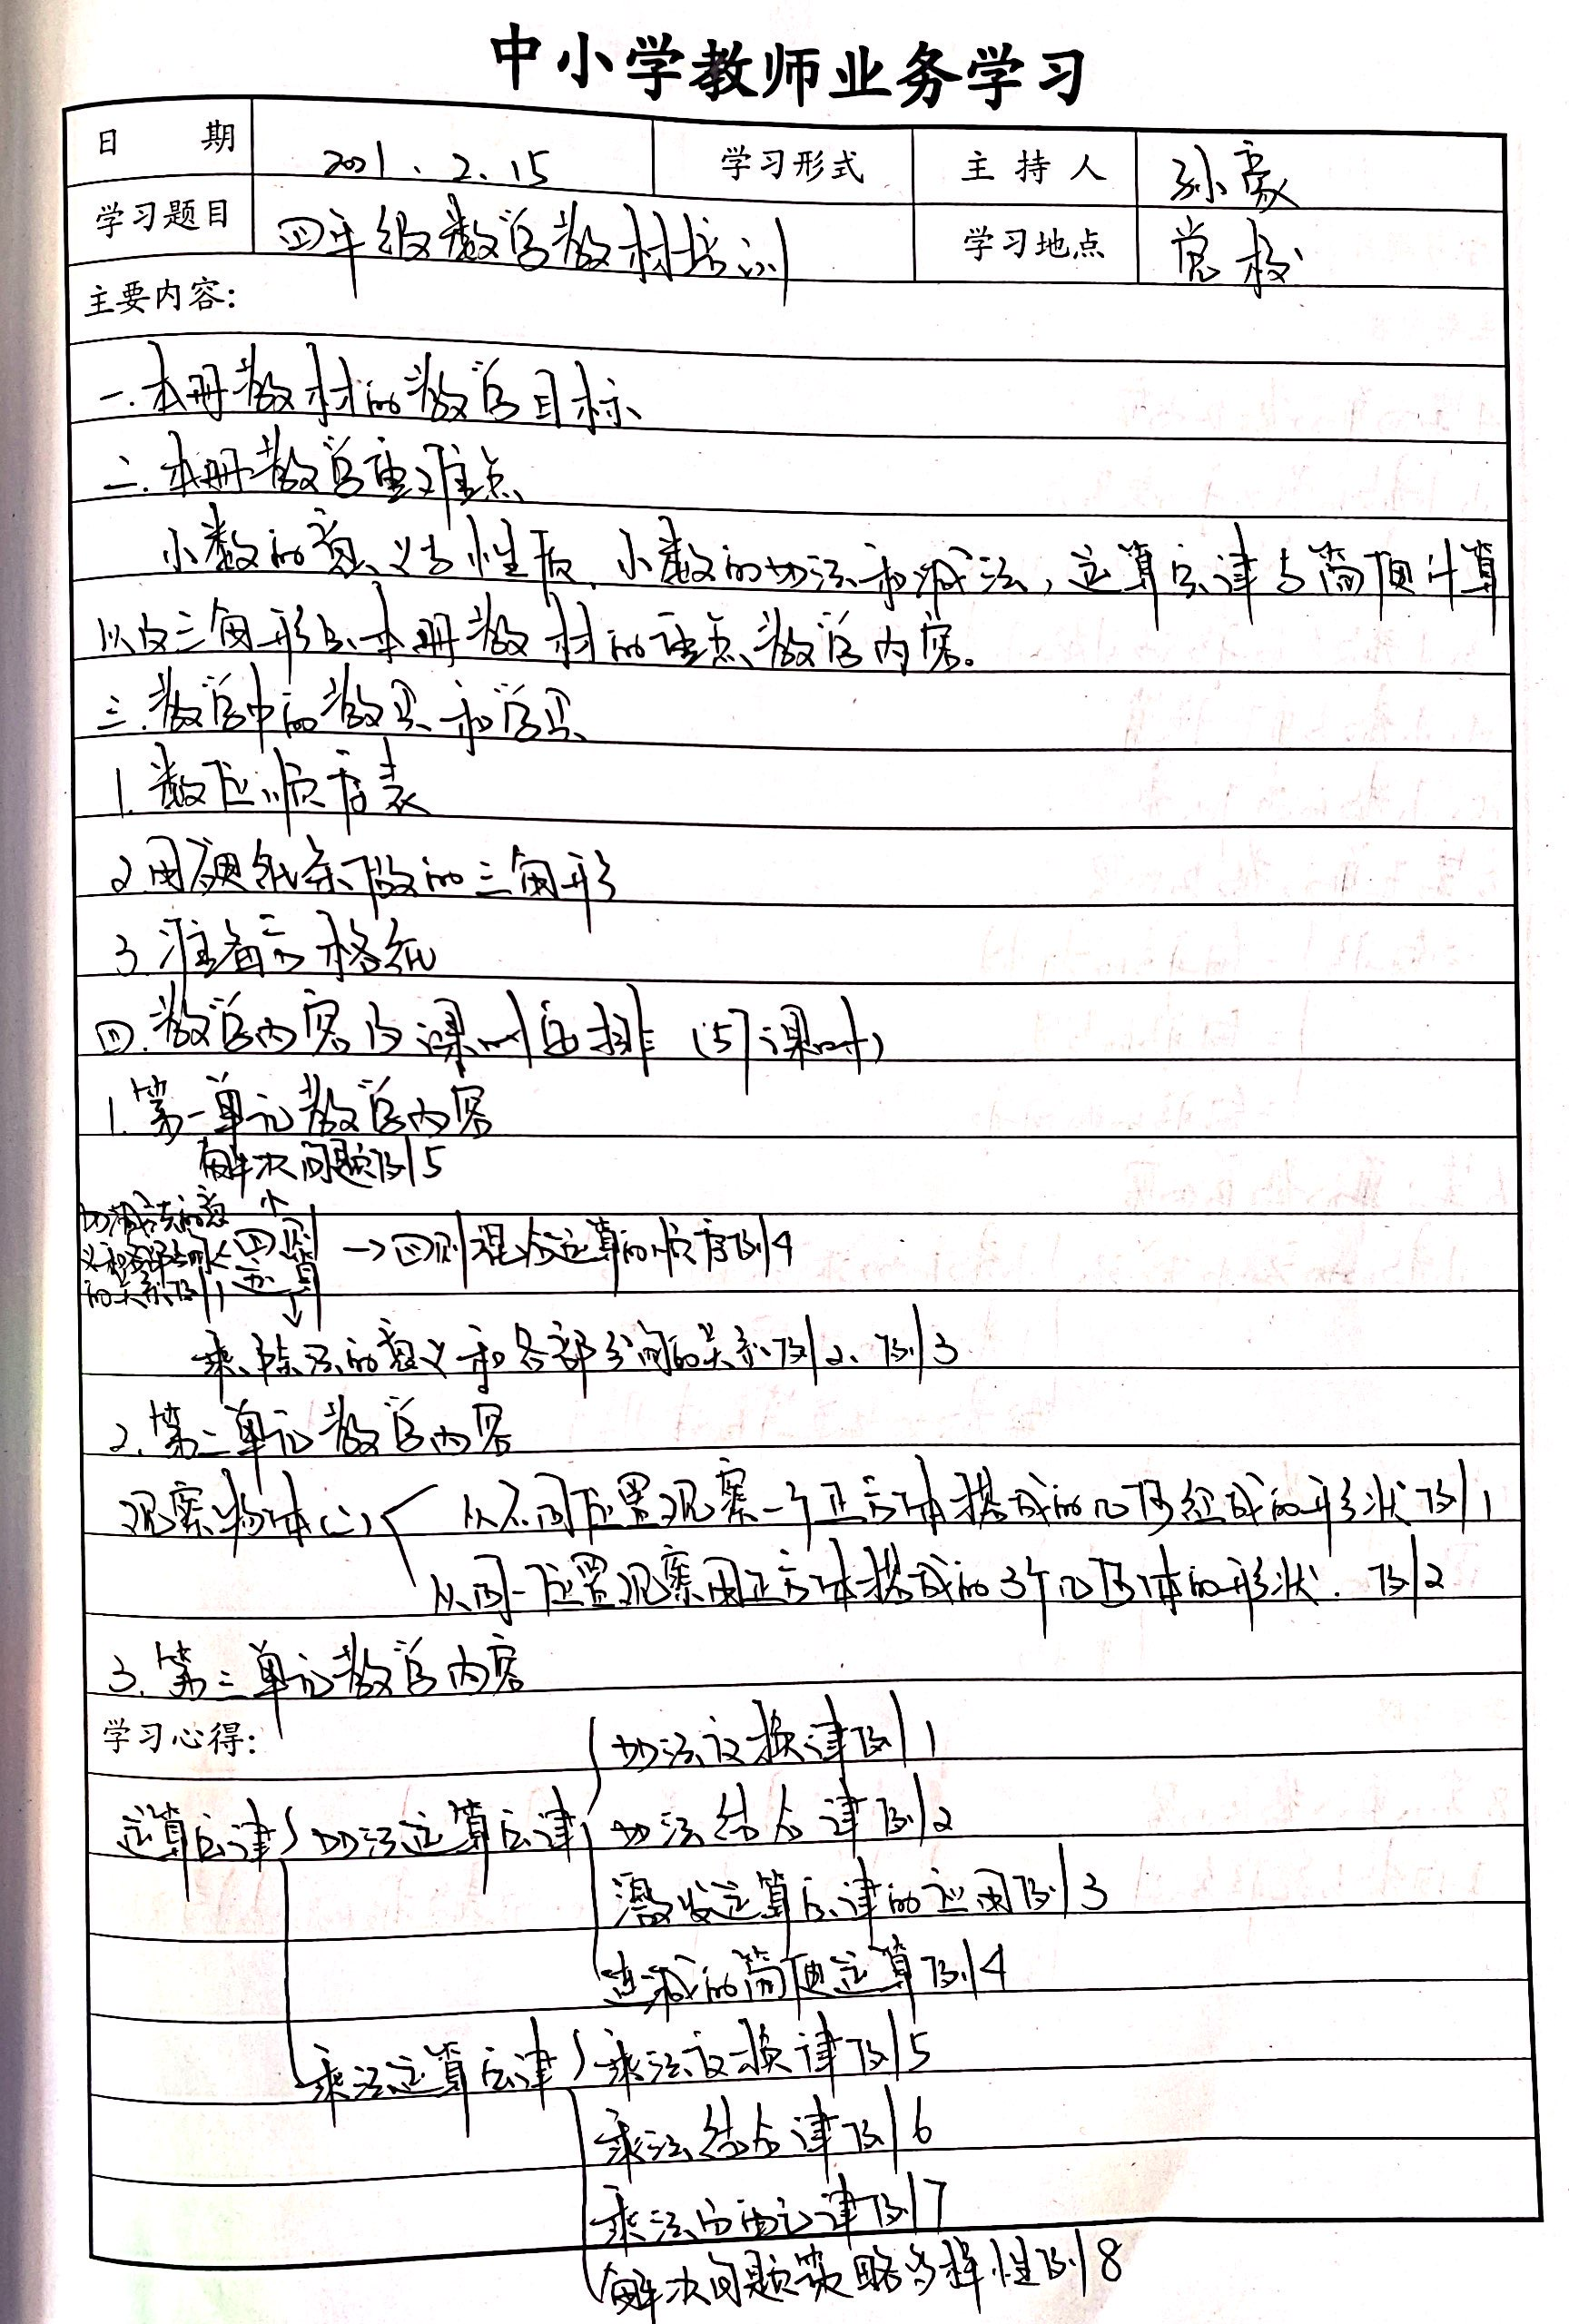 中小学教师业务学习
日 期 2021.2.15 学习形式 主持人 孙豪
学习题目 四年级数学教材培训 学习地点 党校
主要内容:
一.本册教材的教学目标
二.本册教学重难点
小数的意义与性质,小数的加法和减法,运算定律与简便计算
以及三角形是本册教材的重点教学内容。
三.教学中的教具和学具
1.数位顺序表
2.用硬纸条做的三角形
3.准备方格纸
四.教学内容及课时安排(57课时)
1.第一单元教学内容
解决问题例5
↑
加减法的意义和各部分间的关系例1 ← 四则运算 → 四则混合运算的顺序例4
↓
乘、除法的意义和各部分间的关系例2、例3
2.第二单元教学内容
观察物体(二) 从不同位置观察一个正方体搭成的几何组成的形状例1
从同一位置观察用正方体搭成的3个几何体的形状.例2
3.第三单元教学内容
学习心得:
加法交换律例1
运算定律 加法运算定律 加法结合律例2
激发运算定律的应用例3
连减的简便运算例4
乘法运算定律 乘法交换律例5
乘法结合律例6
乘法分配律例7
解决问题策略多样性例8